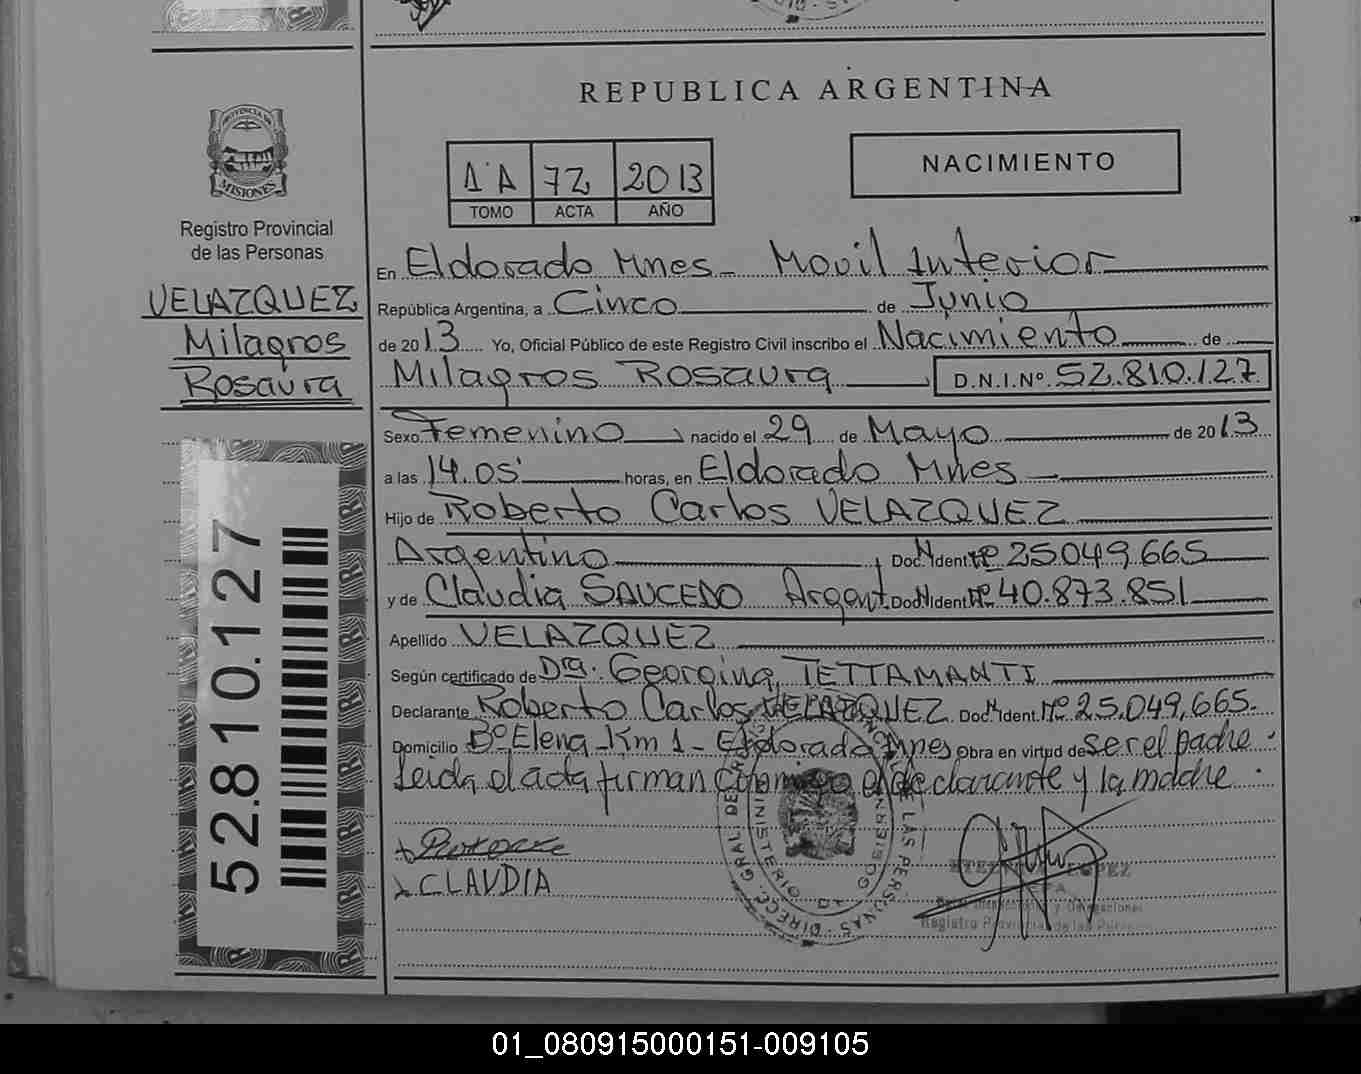 REPUBLICA ARGENTINA
PROVINCIA DE
MISIONES
Registro Provincial
de las Personas
VELAZQUEZ
Milagros
Rosaura
52.810.127
1°A 72 2013
TOMO ACTA AÑO
NACIMIENTO
En Eldorado Mnes - Movil Interior
República Argentina, a Cinco de Junio
de 2013 Yo, Oficial Público de este Registro Civil inscribo el Nacimiento de
Milagros Rosaura D.N.I.Nº 52.810.127
Sexo Femenino nacido el 29 de Mayo de 2013
a las 14.05' horas, en Eldorado Mnes
Hijo de Roberto Carlos VELAZQUEZ
Argentino Doc. N. Ident. Nº 25.049.665
y de Claudia SAUCEDO Argent. Doc. N. Ident. Nº 40.873.851
Apellido VELAZQUEZ
Según certificado de Dra. Georgina TETTAMANTI
Declarante Roberto Carlos VELAZQUEZ Doc. N. Ident. Nº 25.049.665.
Domicilio Bº Elena - Km 1 - Eldorado Mnes Obra en virtud de ser el padre.
Leida el acta firman conmigo el declarante y la madre.
CLAUDIA
DIRECC. GRAL. DEL REG. DE LAS PERSONAS
MINISTERIO DE GOBIERNO
LOPEZ
Registro Provincial de las Personas
01_080915000151-009105